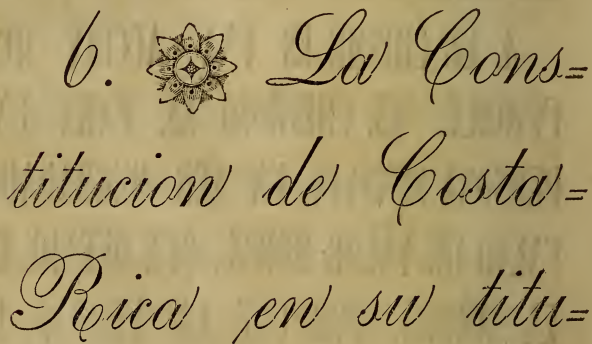 6. La Cons=
titucion de Costa=
Rica en su titu=